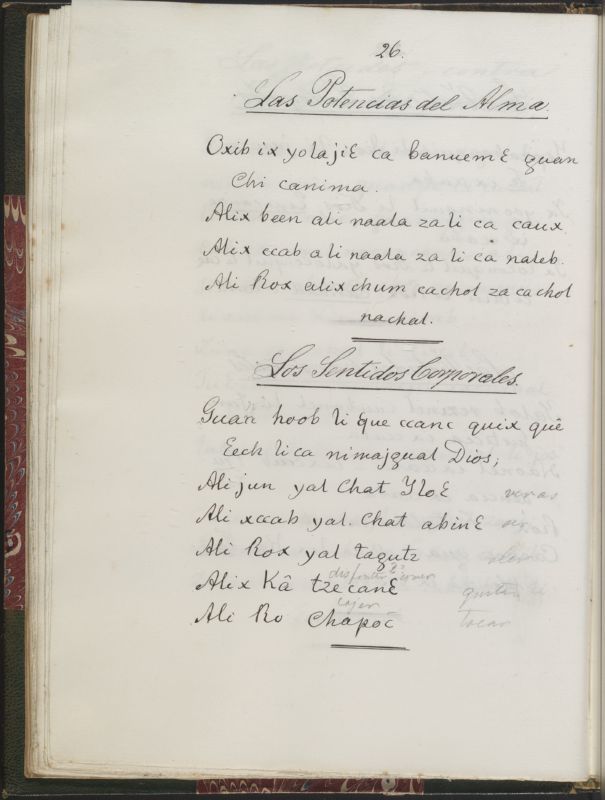 26.
Las Potencias del Alma.
Oxib ix yolajiƐ ca banuemƐ guan
Chi canima.
Alix been ali naala za li ca caux.
Alix ccab ali naala za li ca naleb.
Ali Rox alix chum cachol za ca chol
nachal.
Los Sentidos Corporales.
Guan hoob li que ccanc quix quê
Eech li ca nimajgual Dios;
Ali jun yal Chat YloƐ
Ali xccab yal. Chat abinƐ
Ali Rox yal tagutz
Alix Kâ tzecanƐ
Ali Ro Chapoc
tocar